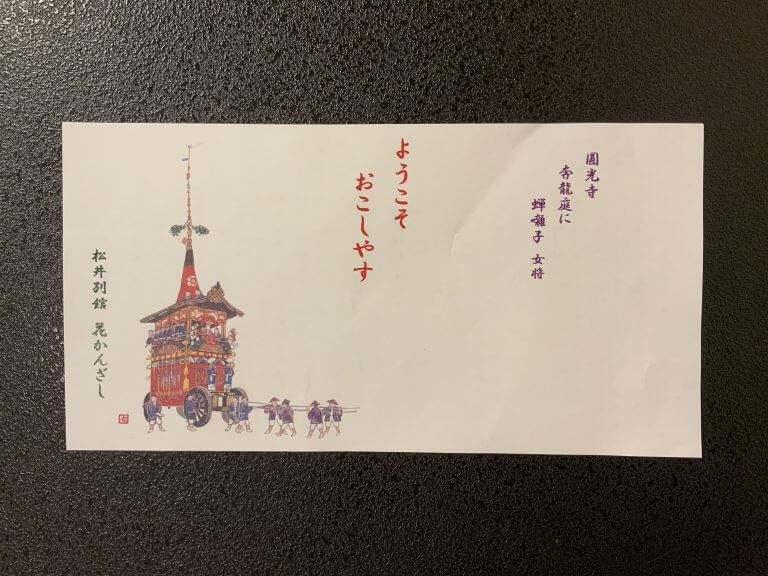 圓光寺
奔龍庭に
蝉囃子 女将
ようこそ
おこしやす
松井別館 花かんざし